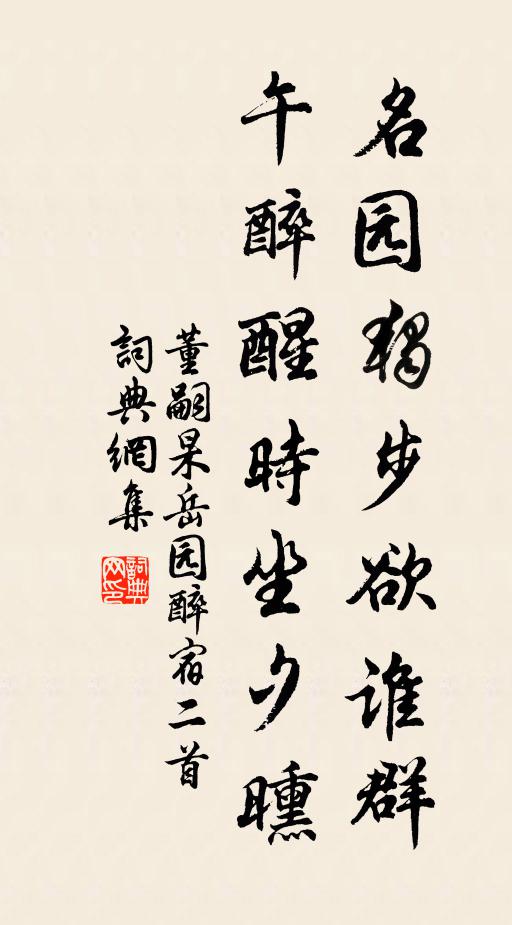 名园独步欲谁群
午醉醒時坐夕曛
董嗣杲岳园醉宿二首
詞典網集
詞典网印